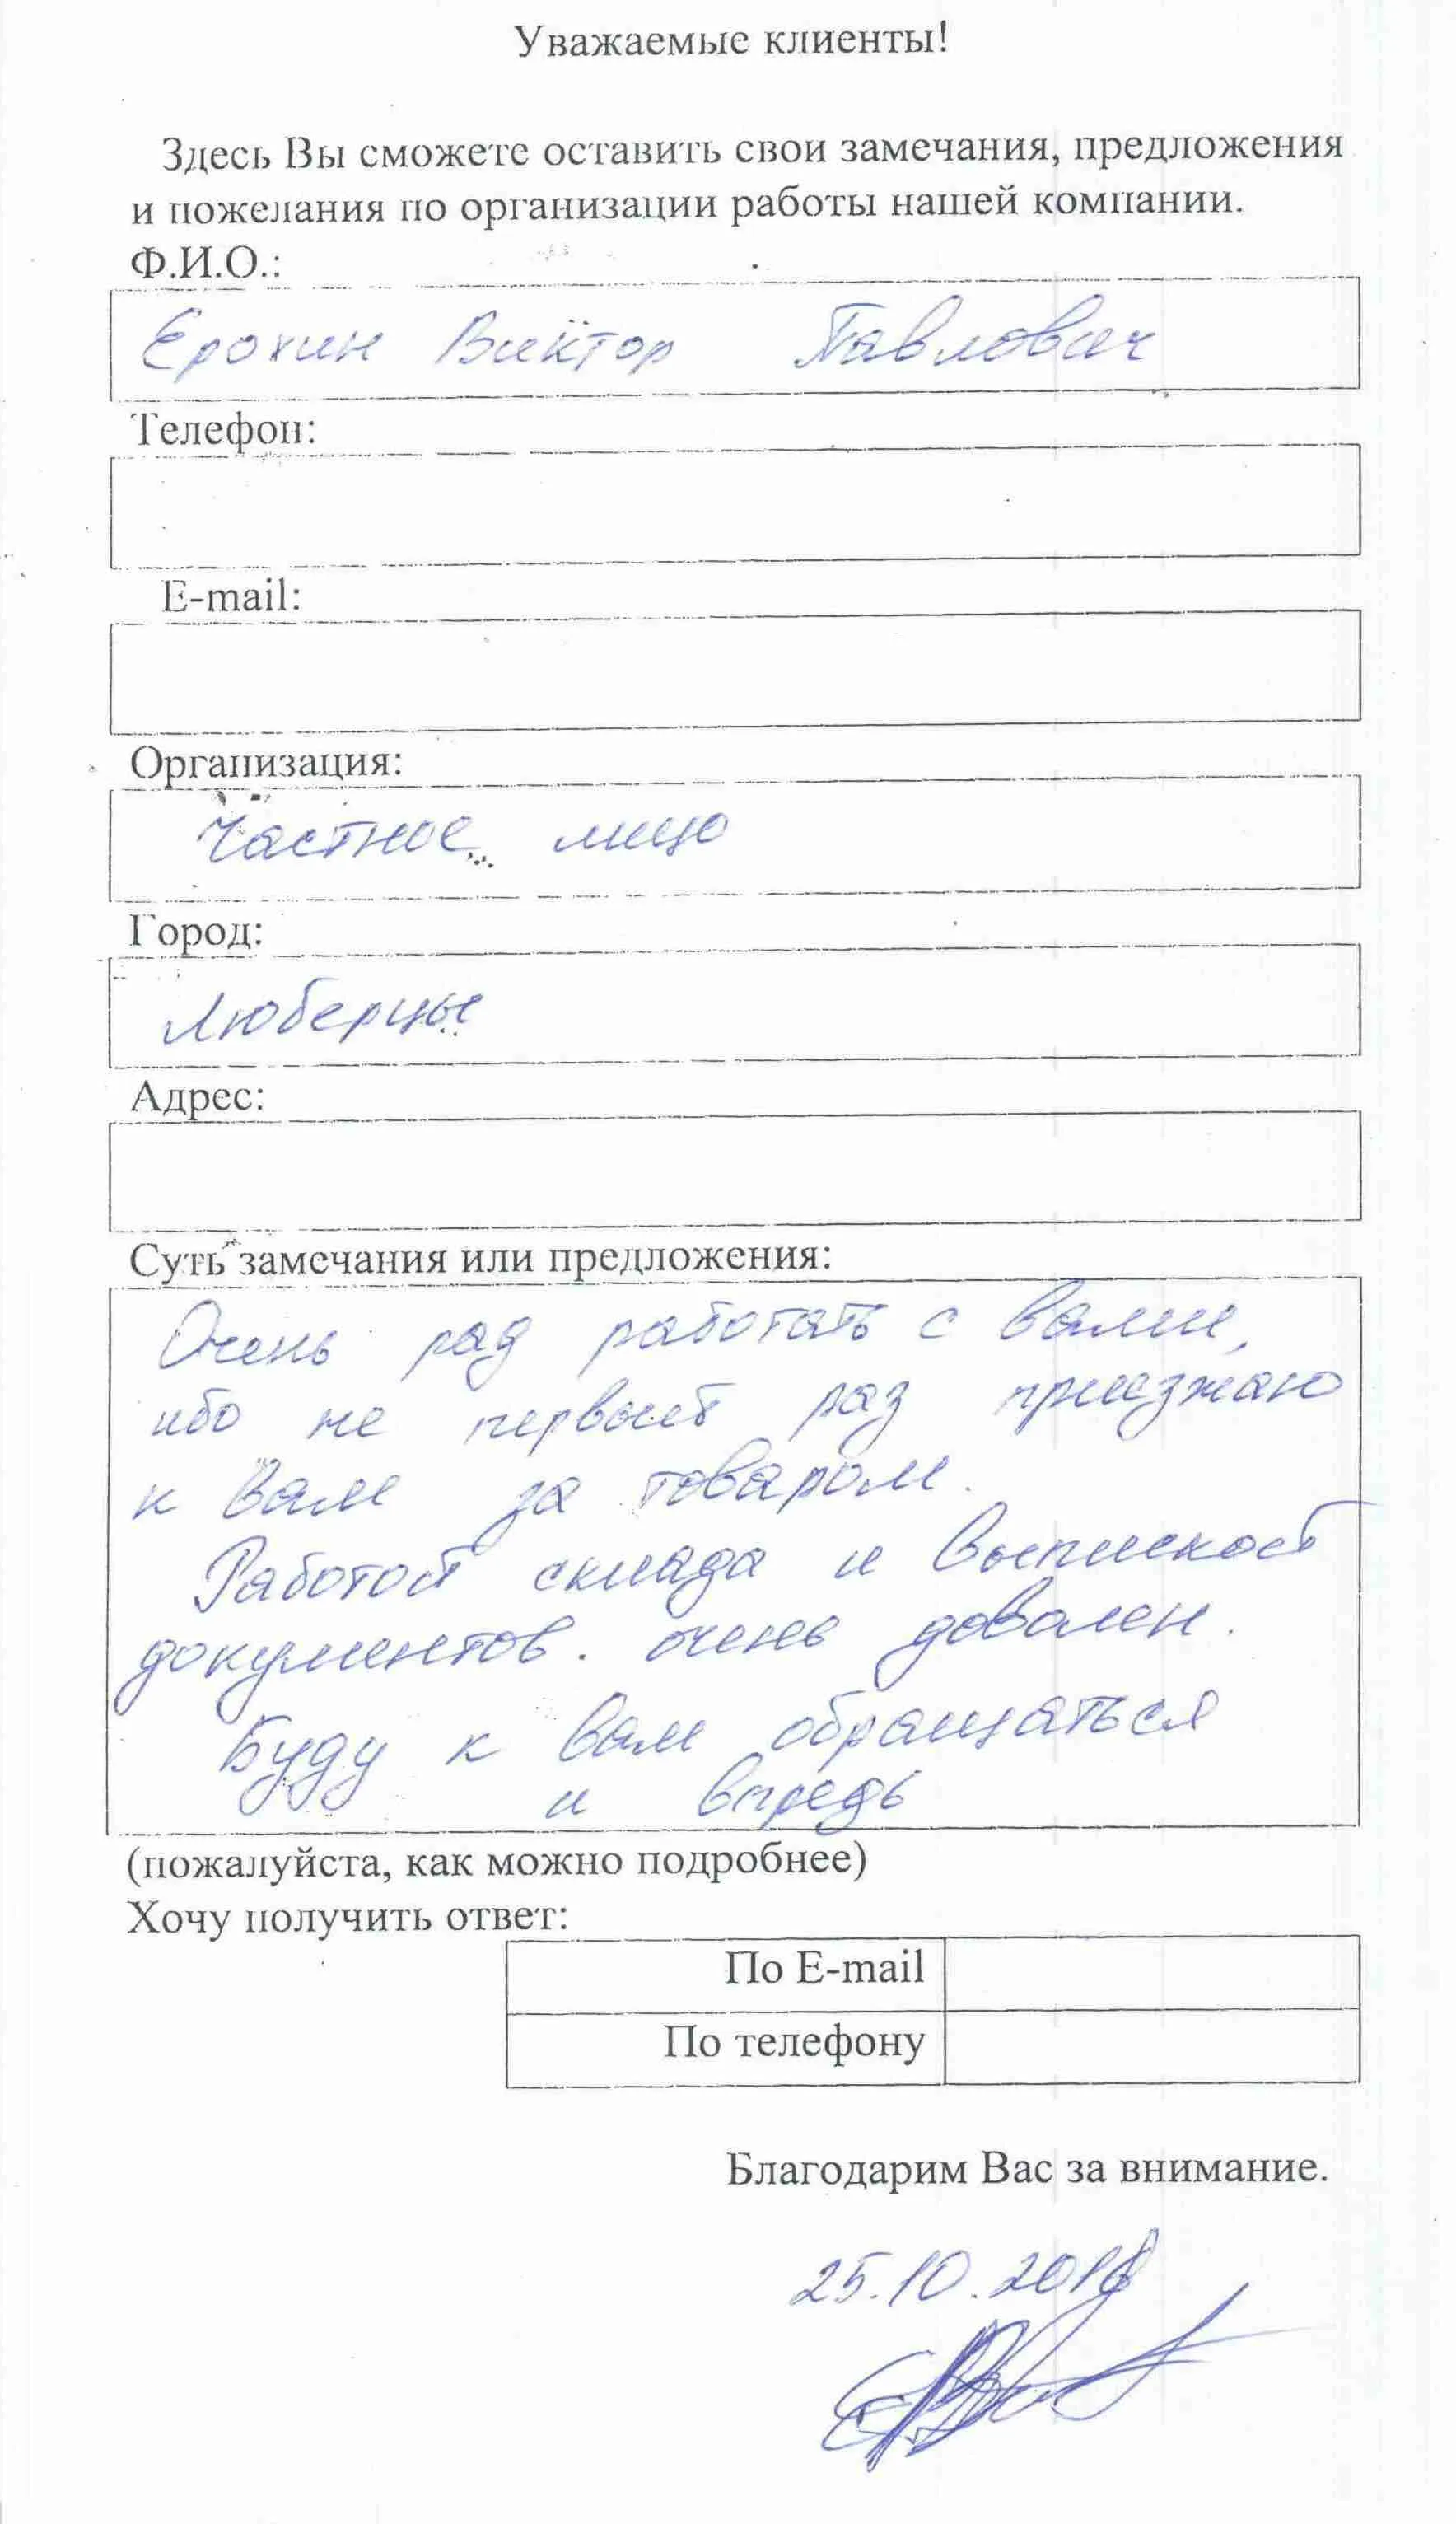 Уважаемые клиенты!
Здесь Вы сможете оставить свои замечания, предложения
и пожелания по организации работы нашей компании.
Ф.И.О.:
Ерохин Виктор Павлович
Телефон:
E-mail:
Организация:
Частное лицо
Город:
Люберцы
Адрес:
Суть замечания или предложения:
Очень рад работать с вами,
ибо не первый раз приезжаю
к вам за товаром.
Работой склада и выпиской
документов очень доволен.
Буду к вам обращаться
и впредь
(пожалуйста, как можно подробнее)
Хочу получить ответ:
По E-mail
По телефону
Благодарим Вас за внимание.
25.10.2018